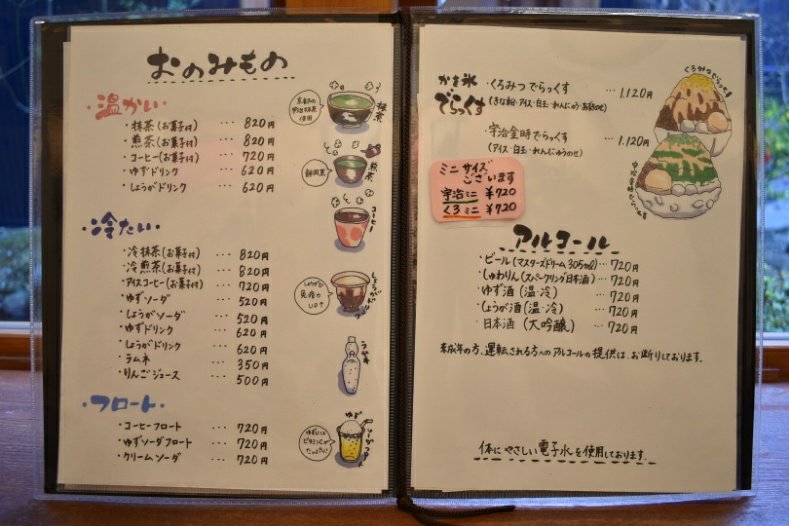 おのみもの
・温かい・
・抹茶(お菓子付) ･･･ 820円
・煎茶(お菓子付) ･･･ 820円
・コーヒー(お菓子付) ･･･ 720円
・ゆずドリンク ･･･ 620円
・しょうがドリンク ･･･ 620円
抹茶
煎茶
静岡茶
コーヒー
・冷たい・
・冷抹茶(お菓子付) ･･･ 820円
・冷煎茶(お菓子付) ･･･ 820円
・アイスコーヒー(お菓子付) ･･･ 720円
・ゆずソーダ ･･･ 520円
・しょうがソーダ ･･･ 520円
・ゆずドリンク ･･･ 620円
・しょうがドリンク ･･･ 620円
・ラムネ ･･･ 350円
・りんごジュース ･･･ 500円
しょうがドリンク
ラムネ
・フロート・
・コーヒーフロート ･･･ 720円
・ゆずソーダフロート ･･･ 720円
・クリームソーダ ･･･ 720円
ゆず
ソーダフロート
ゆずには
ビタミンCが
たっぷり!
かき氷
でらっくす
・くろみつでらっくす ･･･ 1,120円
(きな粉・アイス・白玉・れんにゅう・あずきのせ)
・宇治金時でらっくす ･･･ 1,120円
(アイス・白玉・れんにゅうのせ)
くろみつでらっくす
宇治金時でらっくす
ミニサイズ
ございます
宇治ミニ ￥720
くろミニ ￥720
アルコール
・ビール(マスターズドリーム 305ml) ･･･ 720円
・しゅわりん(スパークリング日本酒) ･･･ 720円
・ゆず酒(温・冷) ･･･ 720円
・しょうが酒(温・冷) ･･･ 720円
・日本酒(大吟醸) ･･･ 720円
未成年の方、運転される方へのアルコールの提供は、お断りしております。
体にやさしい電子水を使用しております。